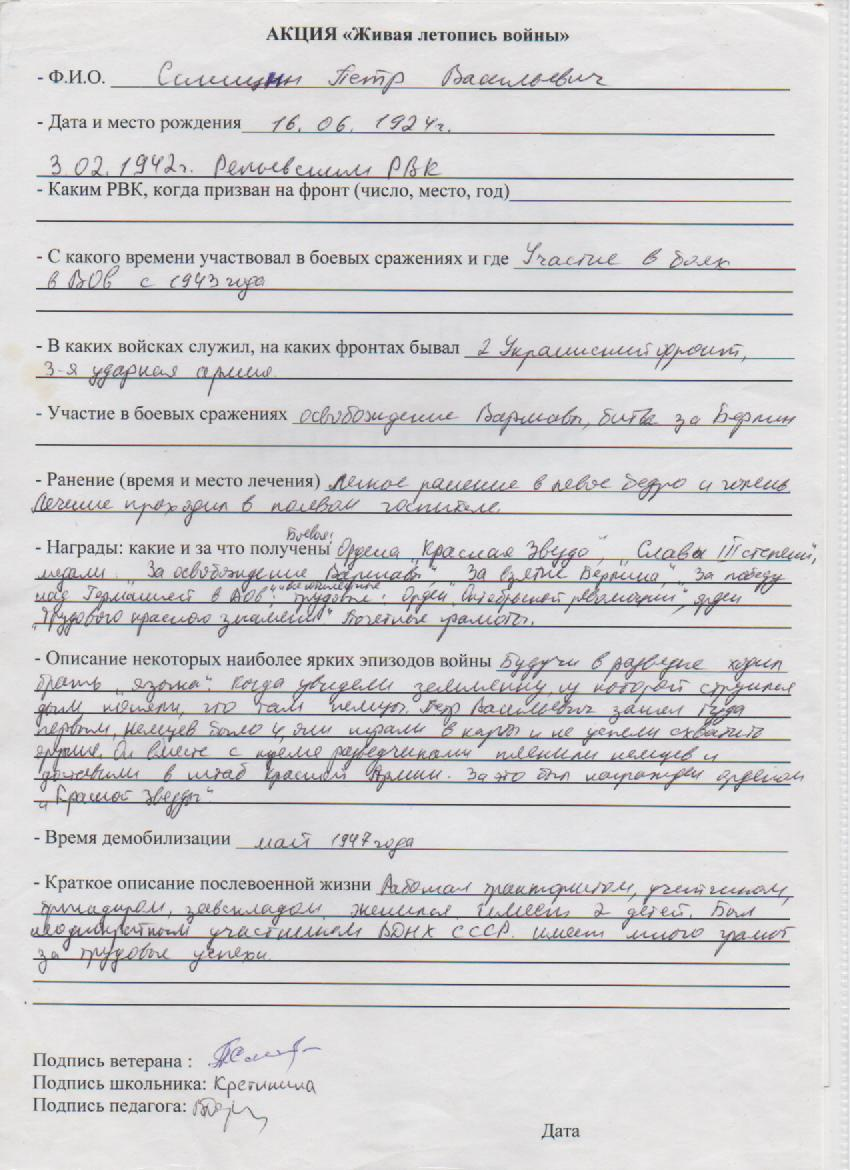 АКЦИЯ «Живая летопись войны»
- Ф.И.О. Петр Васильевич
- Дата и место рождения 16.06.1924г.
3.02.1942г. РВК
- Каким РВК, когда призван на фронт (число, место, год)
- С какого времени участвовал в боевых сражениях и где Участие в боях
в ВОв с 1943 года
- В каких войсках служил, на каких фронтах бывал 2 Украинский фронт,
3-я ударная армия.
- Участие в боевых сражениях освобождение Варшавы, битва за Берлин
- Ранение (время и место лечения) Легкое ранение в левое бедро и голень
Лечение проходил в полевом госпитале.
Боевые:
- Награды: какие и за что получены Ордена „Красная Звезда", „Славы III степени",
медали „За освобождение Варшавы", „За взятие Берлина", „За победу
над Германией в ВОв", трудовые: Орден „Октябрьской революции", орден
„Трудового красного знамени" Почетные грамоты.
- Описание некоторых наиболее ярких эпизодов войны Будучи в разведке ходил
брать „языка". Когда увидели землянку, из которой струился
дым поняли, что там немцы. Петр Васильевич зашел туда
первым, немцев было 4, они играли в карты и не успели схватить
оружие. Он вместе с двумя разведчиками пленили немцев и
доставили в штаб Красной Армии. За это был награжден орденом
„Красной Звезды"
- Время демобилизации май 1947 года
- Краткое описание послевоенной жизни Работал трактористом, учетчиком,
бригадиром, завскладом. Женился. Имеет 2 детей. Был
неоднократным участником ВДНХ СССР. имеет много грамот
за трудовые успехи.
Подпись ветерана :
Подпись школьника: Кретинина
Подпись педагога:
Дата